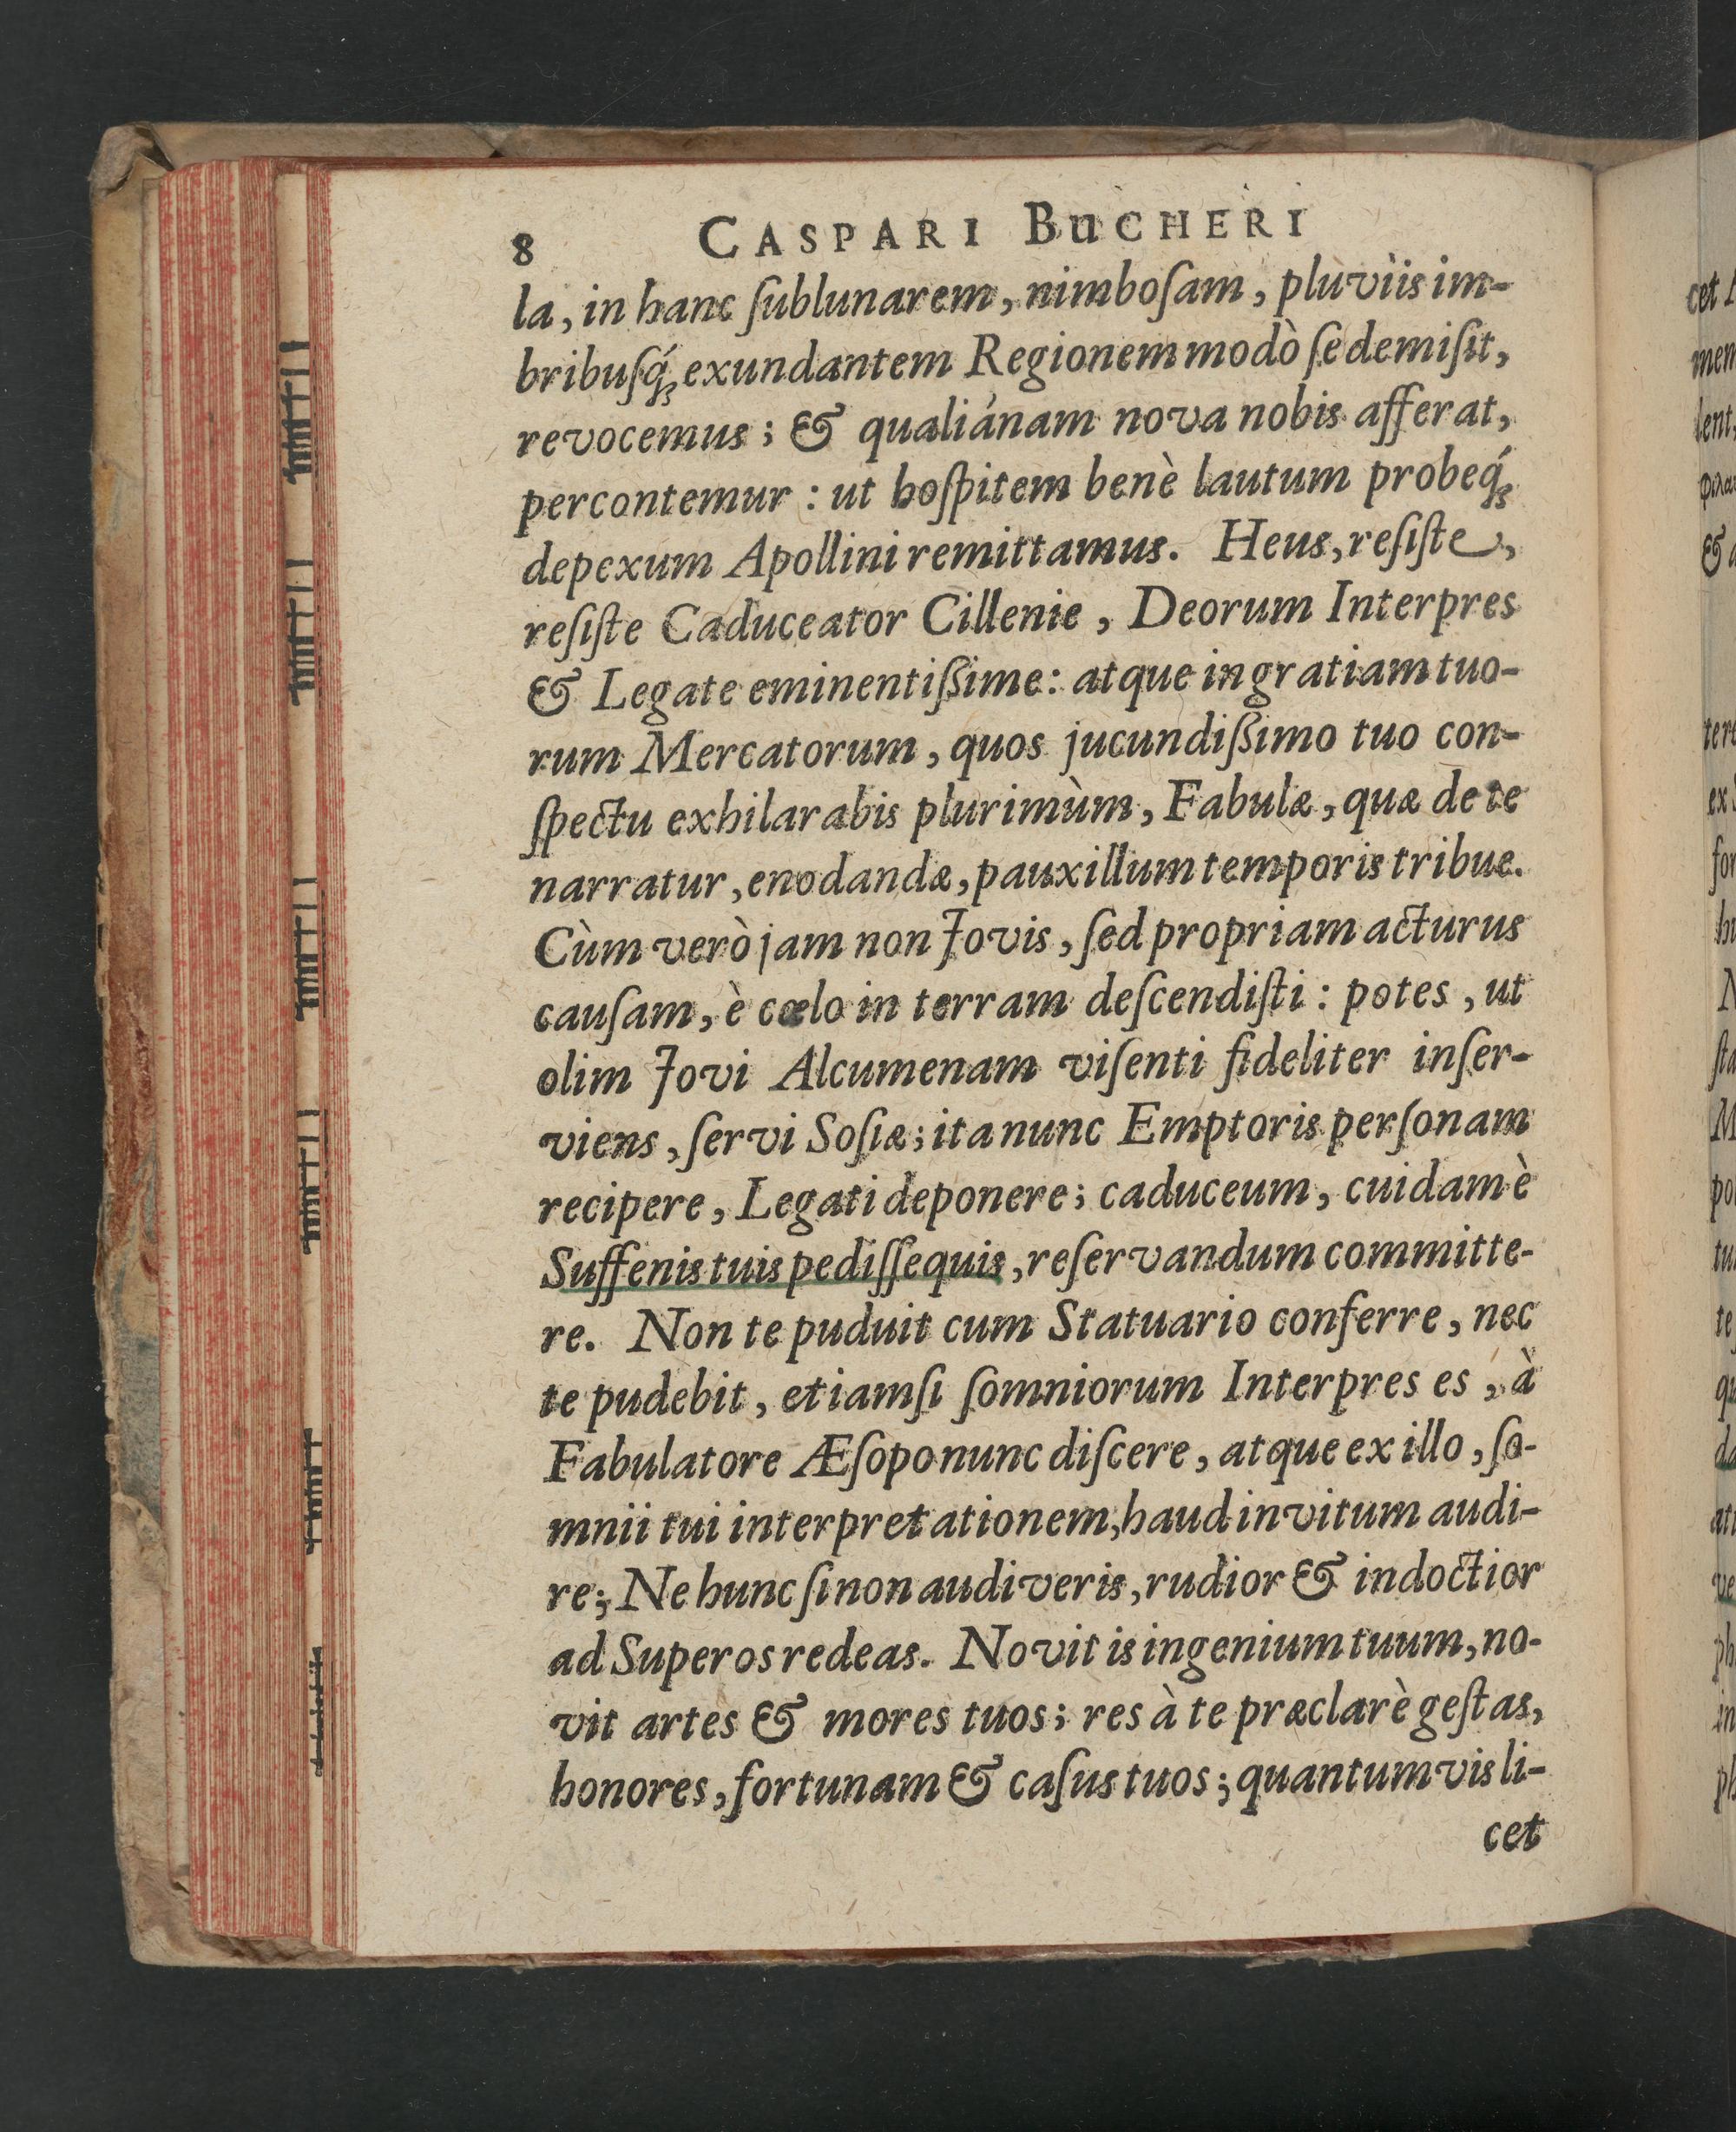 8 CASPARI BuCHERI
la, in hanc ſublunarem, nimboſam, pluviis im-
bribuſq́ꝫ exundantem Regionem modò ſe demiſit,
revocemus; & qualiánam nova nobis afferat,
percontemur : ut hoſpitem benè lautum probeq́ꝫ
depexum Apollini remittamus. Heus, reſiſte,
reſiſte Caduceator Cillenie, Deorum Interpres
& Legate eminentiſſime: atque in gratiam tuo-
rum Mercatorum, quos jucundiſſimo tuo con-
ſpectu exhilarabis plurimùm, Fabulæ, quæ de te
narratur, enodandæ, pauxillum temporis tribue.
Cùm verò jam non Jovis, ſed propriam acturus
cauſam, è cœlo in terram deſcendiſti : potes, ut
olim Jovi Alcumenam viſenti fideliter inſer-
viens, ſervi Soſiæ; ita nunc Emptoris perſonam
recipere, Legati deponere; caduceum, cuidam è
Suffenis tuis pediſſequis, reſervandum committe-
re. Non te puduit cum Statuario conferre, nec
te pudebit, etiamſi ſomniorum Interpres es, à
Fabulatore Æſopo nunc diſcere, atque ex illo, ſo-
mnii tui interpretationem, haud invitum audi-
re; Ne hunc ſi non audiveris, rudior & indoctior
ad Superos redeas. Novit is ingenium tuum, no-
vit artes & mores tuos; res à te præclarè geſtas,
honores, fortunam & caſus tuos; quantumvis li-
cet